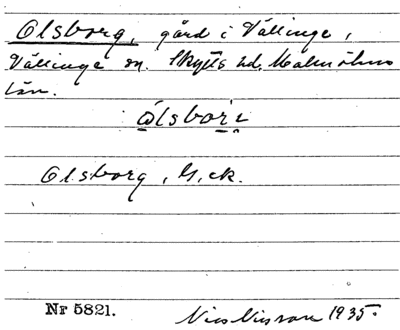 Olsborg, gård i Vällinge,
Vällinge sn. Skytts hd. Malmöhus
län.
Olsborg, G. ek.
Nr 5821.
Nils Nilsson 1935.